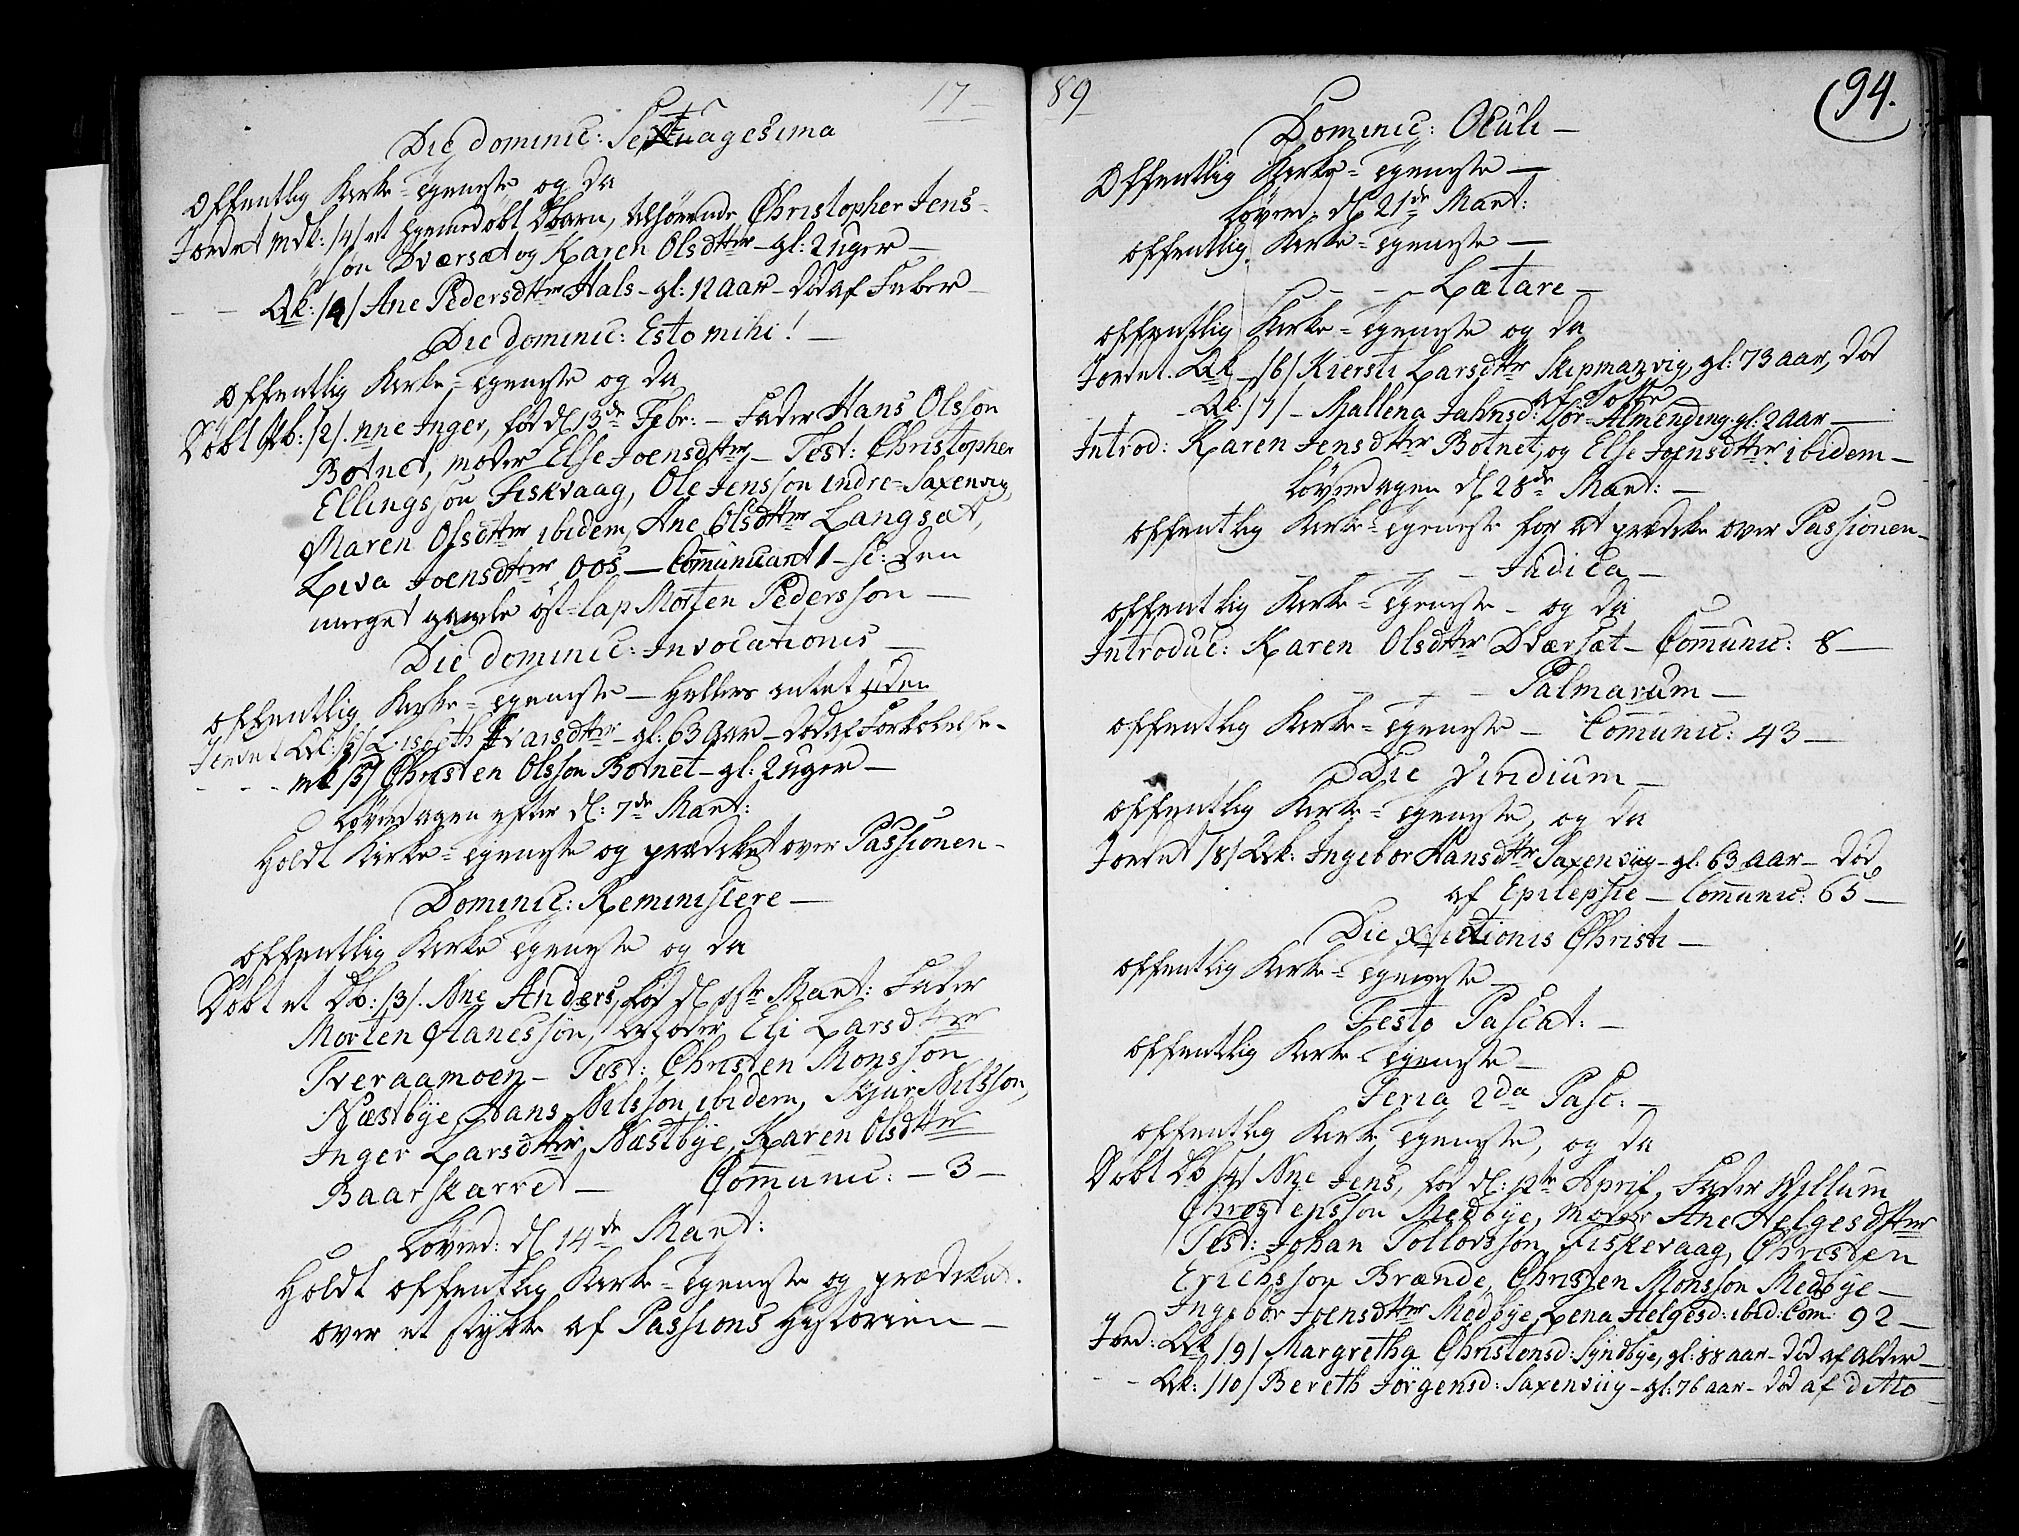 17
Die Dominic: Sextuagesima
Offentlig Kirke-Tjeneste og da
Jordet Mdk: /4/ et hjemedøbt Dbarn, tilhørende Christopher Jens-
søn Dværsæt og Karen Olsdtter - gl: 2 Uger -
- - Qk: /4/ Ane Pedersdtter Hals - gl: 12 aar - død af Feber -
Die Dominic: Estomihi! -
Offentlig Kirke-Tjeneste og da
Døbt Qb: /2/. nne Inger, fød dl 13de Febr: - Fader Hans Olsson
Botnet, Moder Else Joensdtter - Test: Christopher
Ellingsson Fiskvaag, Ole Jensson indre-Saxenvig,
Maren Olsdtter ibidem, Ane Olsdtter Langsæt,
Liva Joensdtter Oos - Comunicant 1 - sc: den
meget gamle öst-lap Morten Pedersson -
Die Dominic: Invocationis -
Offentlig Kirke-Tjeneste - Hellers intet uden
Jordet Qk: /5/ Lisbeth Ivarsdtter - gl: 63 aar - død af Forkølelse -
- - - mk /5/ Christen Olsson Botnet - gl: 2 Uger -
Løverdagen efter dl: 7de Mart:
Holdt Kirke-Tjeneste og prædeket over Passionen -
Dominic: Reminiscere -
Offentlig Kirke Tjeneste og da
Døbt et Db: /3/. Nne Anders, fød dl 1ste Mart: Fader
Morten Hanesson, Moder Eli Larsdtter
Tveraamoen - Test: Christen Monsson
Næstbye, Hans Nilsson ibidem, Sjur Nilsson,
Inger Larsdtter Næstbye, Karen Olsdtter
Baarskarret - Communic: - 3 -
Løverd: dl 14de Mart:
Holdt offentlig Kirke-Tjeneste og prædeket
over et stykke af Passions Historien -
89
94.
Dominic: Oculi -
Offentlig Kirke-Tjeneste -
Løverd: dl 21de Mart:
Offentlig Kirke-Tjeneste -
- - - Lætare -
Offentlig Kirke-Tjeneste og da
Jordet. Qk /6/ Kiersti Larsdtter Skipmanvig, gl: 73 aar, død
- Qk: /7/ - Mallena Jahnsd: Sör-Almending gl: 2 aar -
Introd: Karen Jensdtter Botnet, og Else Joensdtter ibidem -
Løverdagen dl 28de Mart: -
Offentlig Kirke-Tjeneste for at prædeke over Passionen -
- - - - Judica -
Offentlig Kirke-Tjeneste - og da
Introduc: Karen Olsdtter Dværsæt - Comunic: 8 -
- - - Palmarum -
Offentlig Kirke-Tjeneste - Comunic: 43 -
Die Viridium -
Offentlig Kirke-Tjeneste, og da
Jordet /8/ Qk: Ingebor Hansdtter Saxenviig - gl: 63 aar - død
af Epilepsie - Communic: 65 -
Die Christi -
Offentlig Kirke-Tjeneste -
Festo Pascat: -
Offentlig Kirke-Tjeneste -
Feria 2da Pasc: -
Offentlig Kirke Tjeneste, og da
Døbt Db /4/ Nne Jens, fød dl: 1ste April, Fader Willum
Christensson Medbye, Moder Ane Helgesdtter
Test: Johan Tollovsson Fiskevaag, Christen
Erichsson Brænde, Christen Monsson Medbye -
Ingebor Joensdtter Medbye, Lena Helgesd: ibid: Com: 92 -
Jord: Qk /9/ Margretha Christensd: Syndbye, gl: 88 aar - død af alder -
- - Qk: /10/ Bereth Jörgensd: Saxenviig - gl: 76 aar - død af ditto